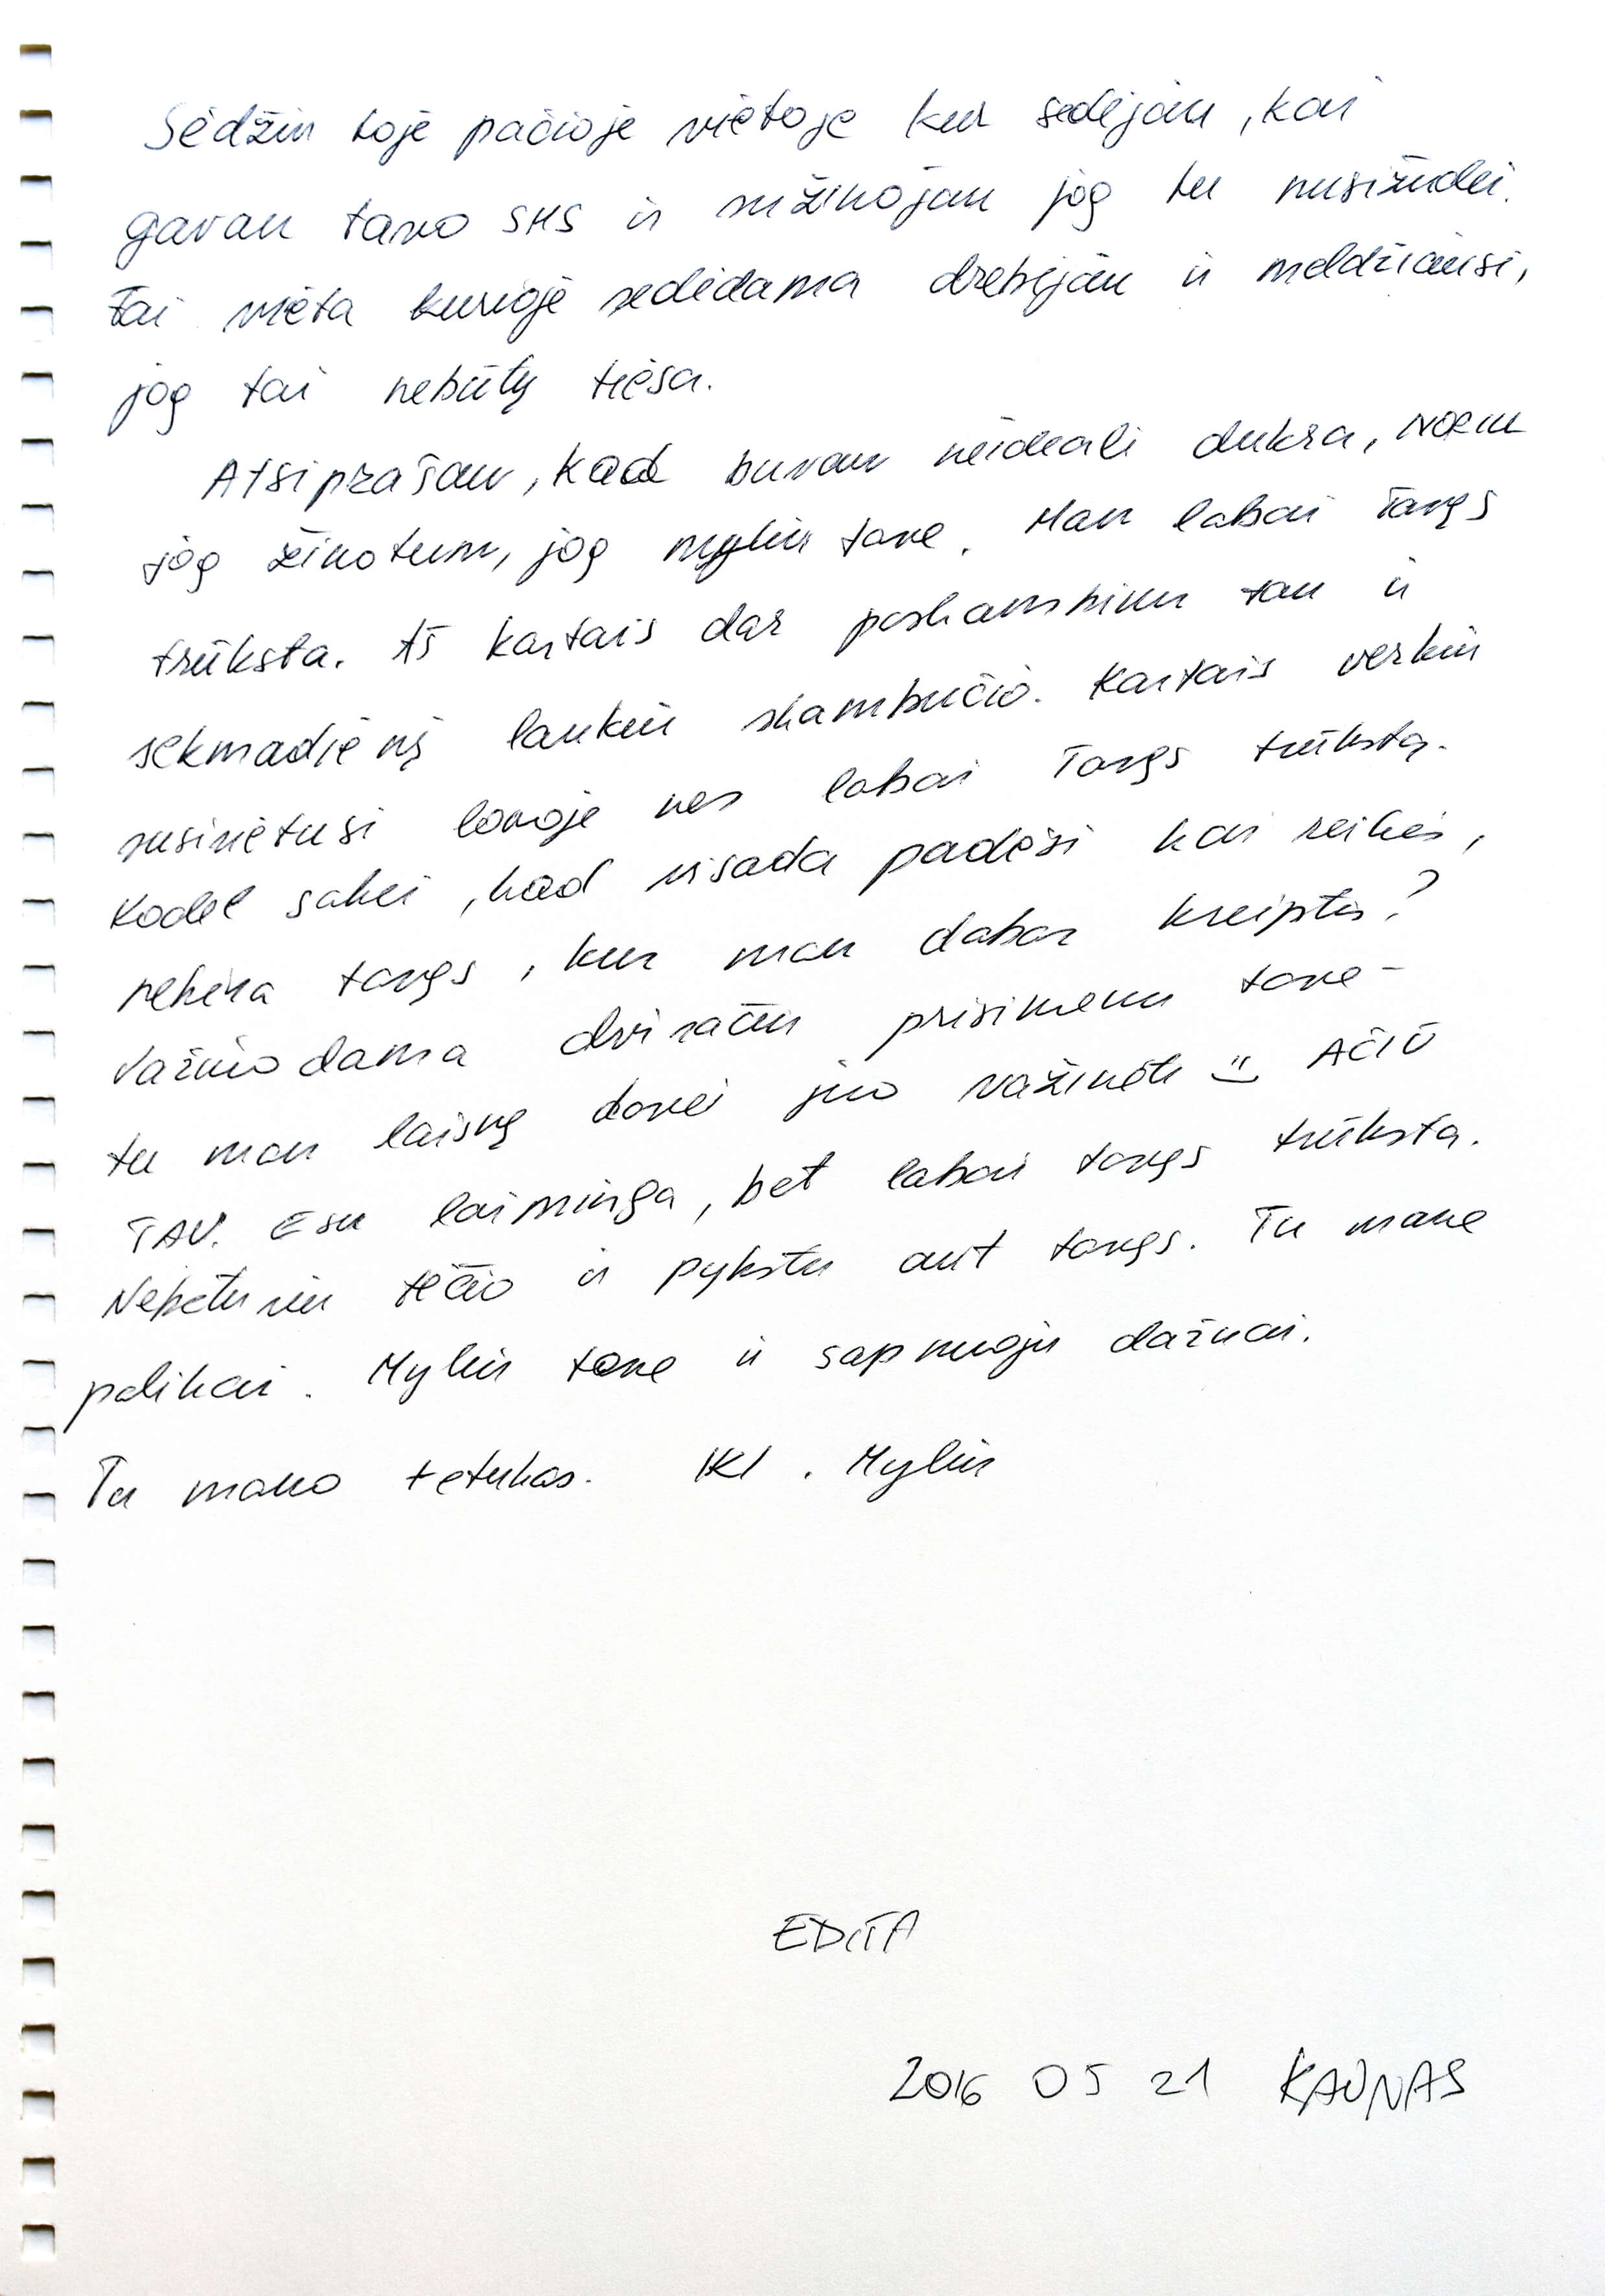 Sėdžiu toje pačioje vietoje kur sedėjau, kai
gavau tavo SMS ir sužinojau jog tu nusižudei.
Tai vieta kurioje sedėdama drebėjau ir meldžiausi,
jog tai nebūtų tiesa.
Atsiprašau, kad buvau neideali dukra, noriu
jog žinotum, jog myliu tave. Man labai tavęs
trūksta. Aš kartais dar paskambinu tau ir
sekmadienį laukiu skambučio. Kartais verkiu
susirietusi lovoje nes labai Tavęs trūksta.
Kodel sakei, kad visada padėsi kai reikės,
nebėra tavęs, kur man dabar kreiptis?
Važiuodama dviračiu prisimenu tave -
tu man laisvę davei juo važinėti :) AČIŪ
TAV. Esu laiminga, bet labai tavęs trūksta.
Nebeturiu tėčio ir pykstu ant tavęs. Tu mane
palikai. Myliu tave ir sapnuoju dažnai.
Tu mano tetukas. IKI. Myliu
EDITA
2016 05 21 KAUNAS